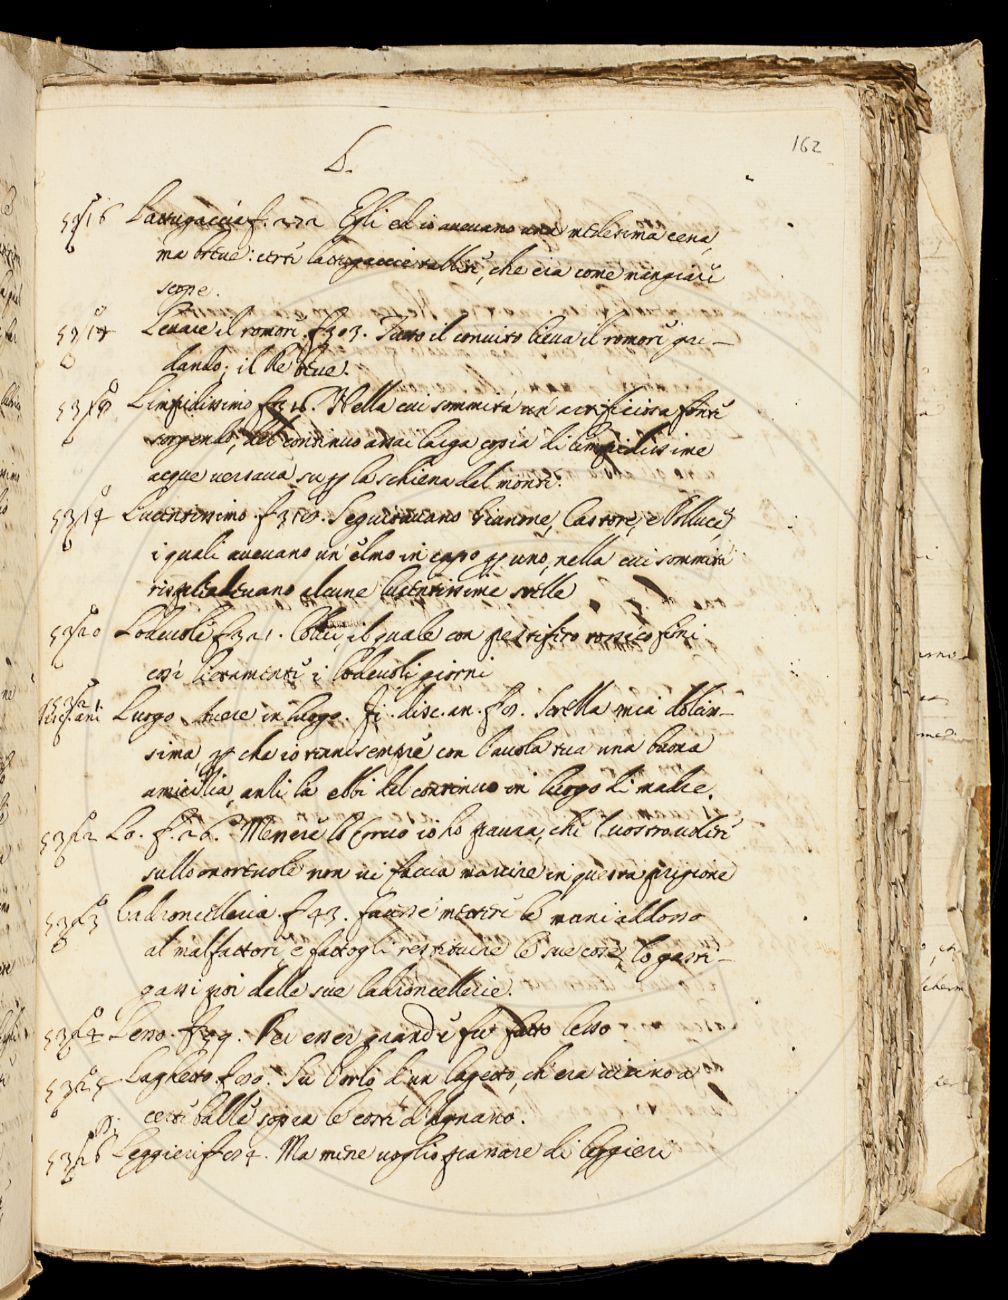 162
L.
Lattugaccia f. 272 Egli ed io avevamo una medesima cena,
ma breve: certi lattugaccie tallite, che era come mangiare
scope.
Levare il romore. f 303. Tutto il convito lieva il romore gri-
dando; il Re beve.
Limpidissimo f 316. Nella cui sommità un' artificiosa fonte
sorgendo, del continuo assai larga copia di limpidissime
acque versava su p la schiena del monte.
Lucentissimo. f 318. Seguitavano Castore, e Polluce,
i quali avevano un' elmo in capo p uno, nella cui sommità
risplendevano alcune lucentissime stelle
Lodevole f 321. il quale con pestifero rossico finì
così lietamente i lodevoli giorni
Luogo avere in luogo. Fi. disc. an. f 8. Sorella mia dolcis-
sima, p che io tenni sempre con Tavola tua una buona
amicizia, anzi la ebbi del continuo in luogo di madre.
Lo. f. 26. Menere lo Corvo io ho paura, che l vostro udire
sullo onorevole non vi faccia marcire in questa prigione
Ladroncelleria. f 43. fattesi mettere le mani addosso
al malfattore, e fattogli restituire le sue cose, lo gasti-
gassi poi delle sue ladroncellerie.
Lesso. f 44. Per esser grande fu fatto lesso
Laghetto f 50. Su l'orlo d'un lagetto, ch'era vicino a
certe balle sopra le coste d'Agnano.
Leggieri f 84. Ma mene voglio passare di leggieri